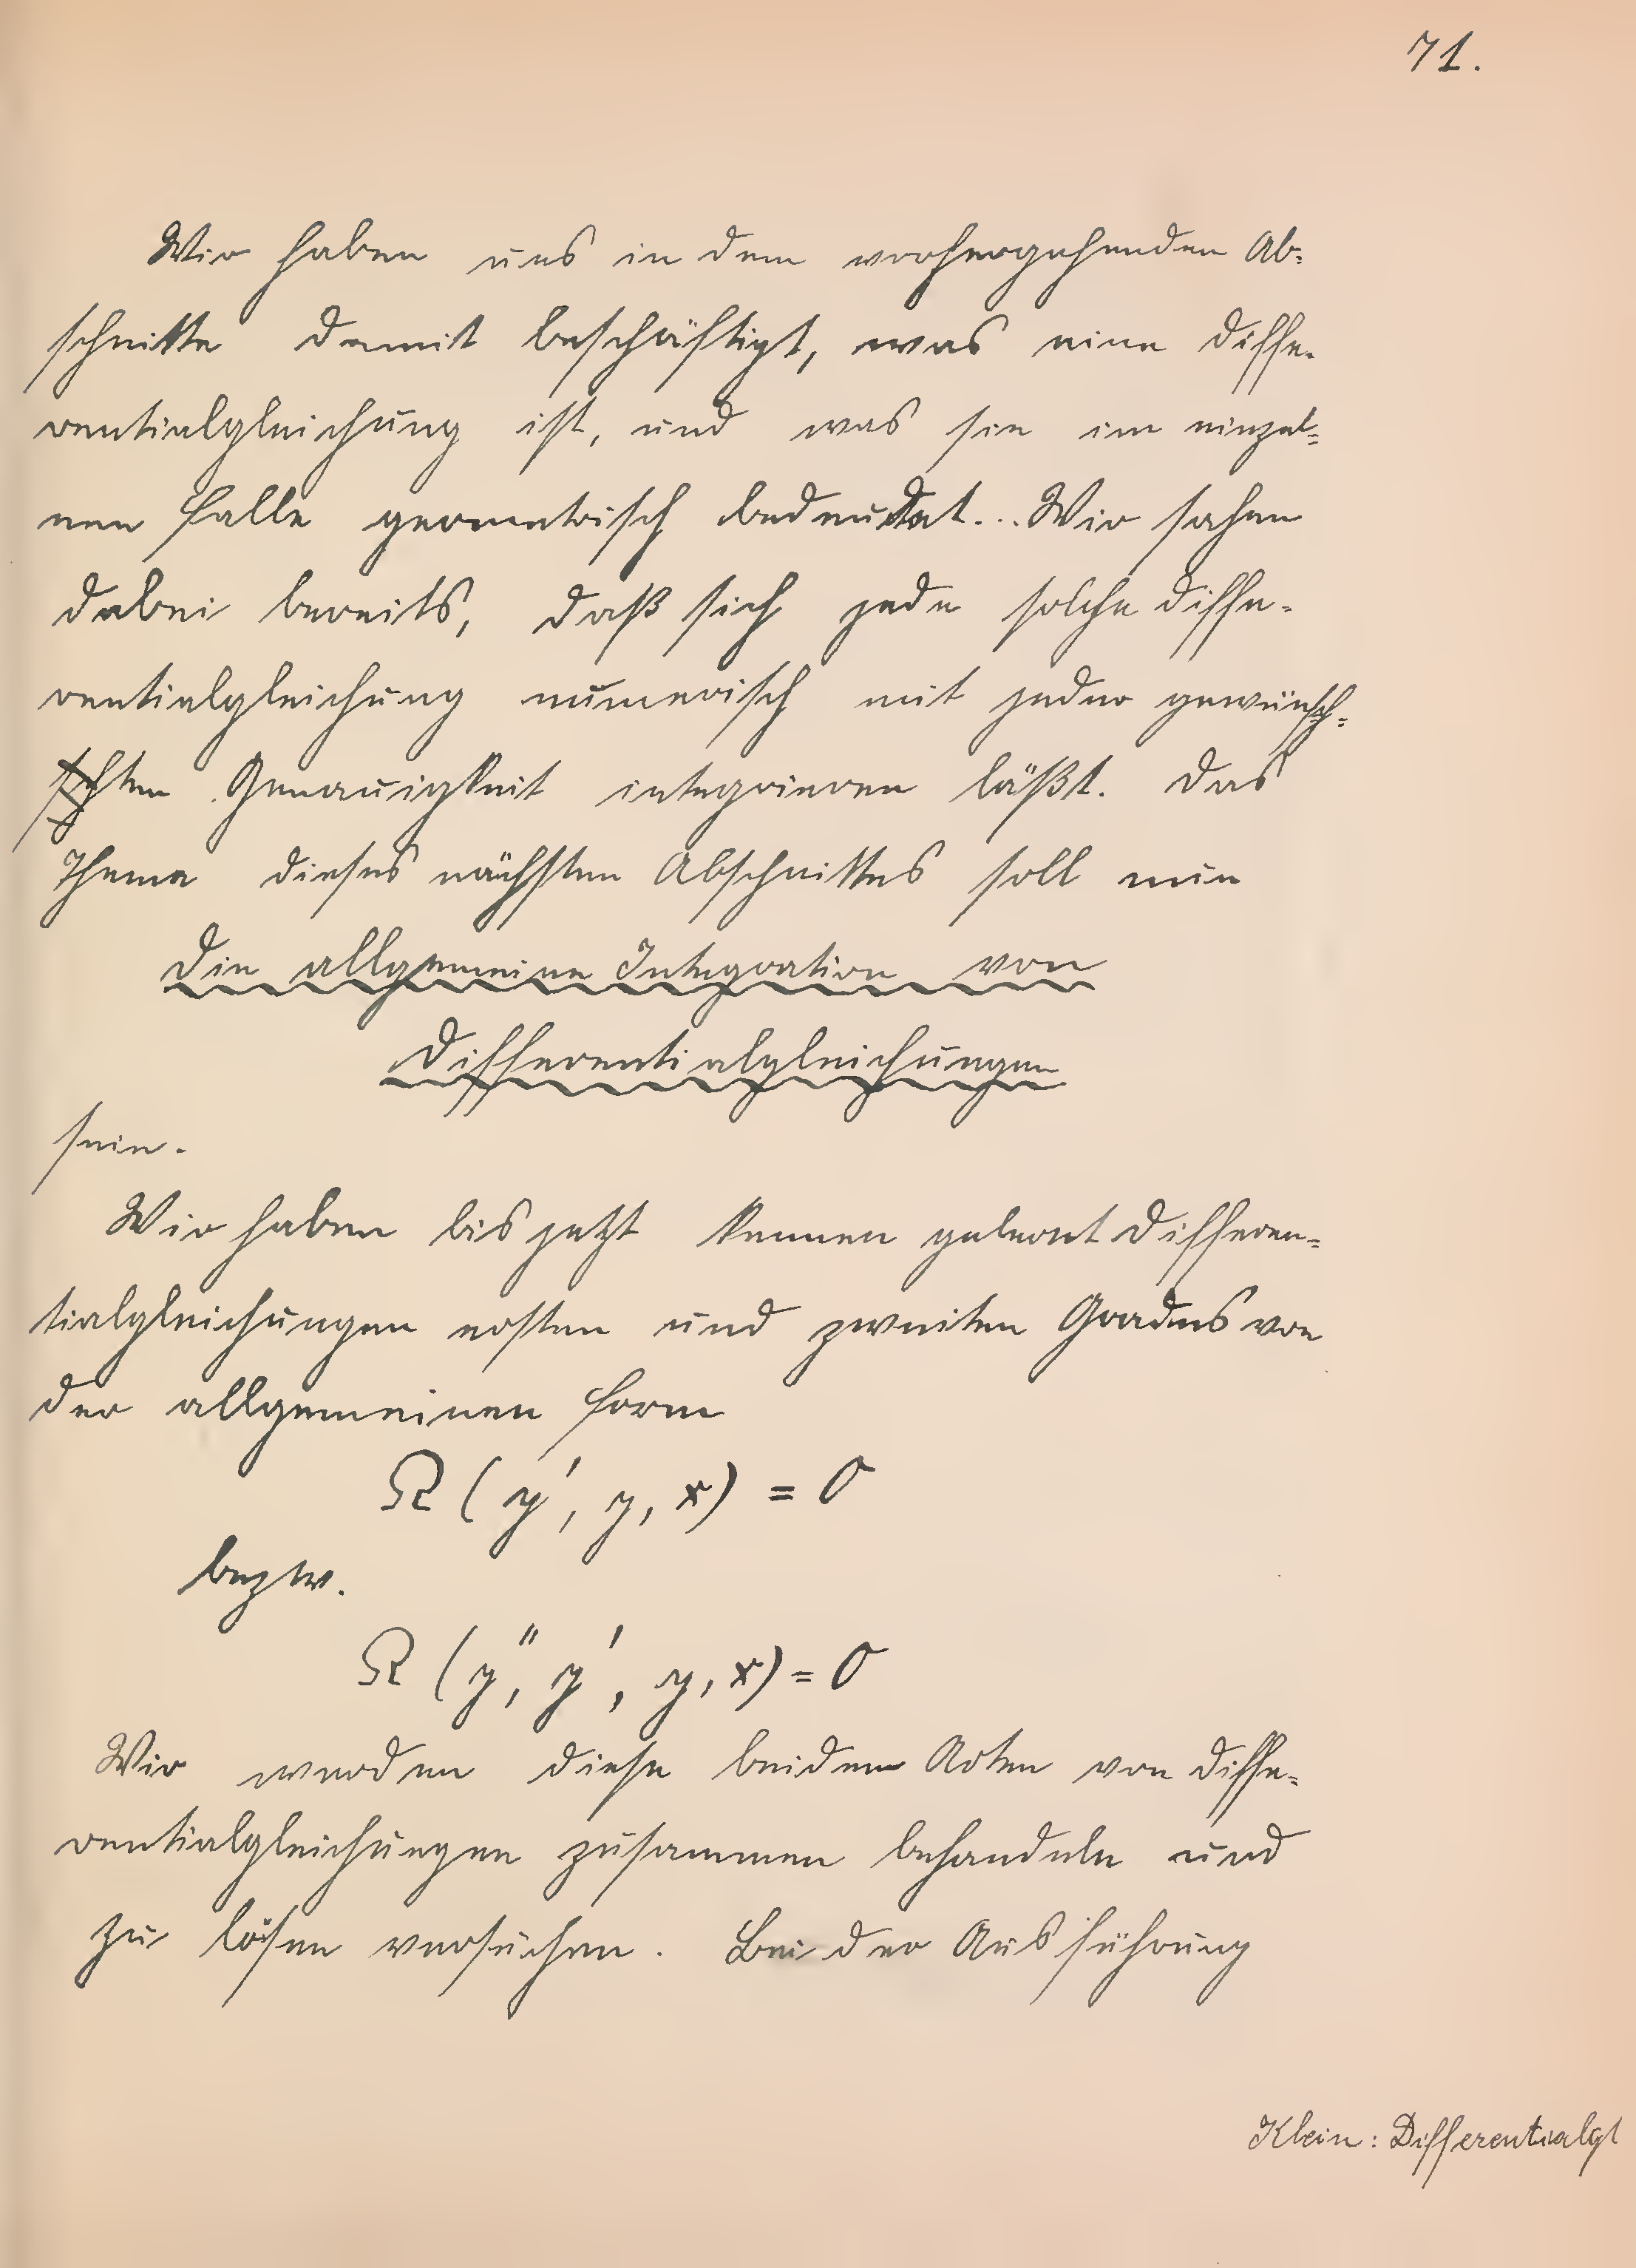 71.
Wir haben uns in dem vorhergehenden Ab=
schnitte damit beschäftigt, was eine Diffe-
rentialgleichung ist, und was sie im einzel=
nen Falle geometrisch bedeutet... Wir sahen
dabei bereits, daß sich jede solche Diffe-
rentialgleichung numerisch mit jeder gewünsch=
ten Genauigkeit integrieren läßt. Das
Thema dieses nächsten Abschnittes soll nun
Die allgemeine Integration von
Differentialgleichungen
sein.
Wir haben bis jetzt kennen gelernt Differen=
tialgleichungen ersten und zweiten Grades von
der allgemeinen Form
Ω (y', y, x) = 0
bezw.
Ω (y'', y', y, x) = 0
Wir werden diese beiden Arten von Diffe=
rentialgleichungen zusammen behandeln und
zu lösen versuchen. Bei der Ausführung
Klein: Differentialgl